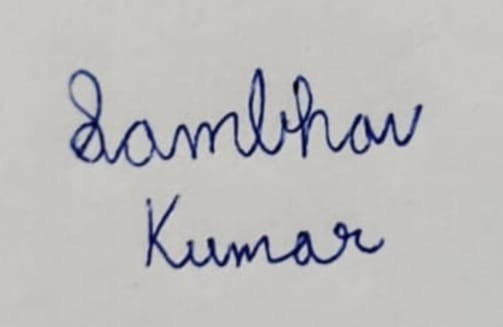 Sambhav
Kumar